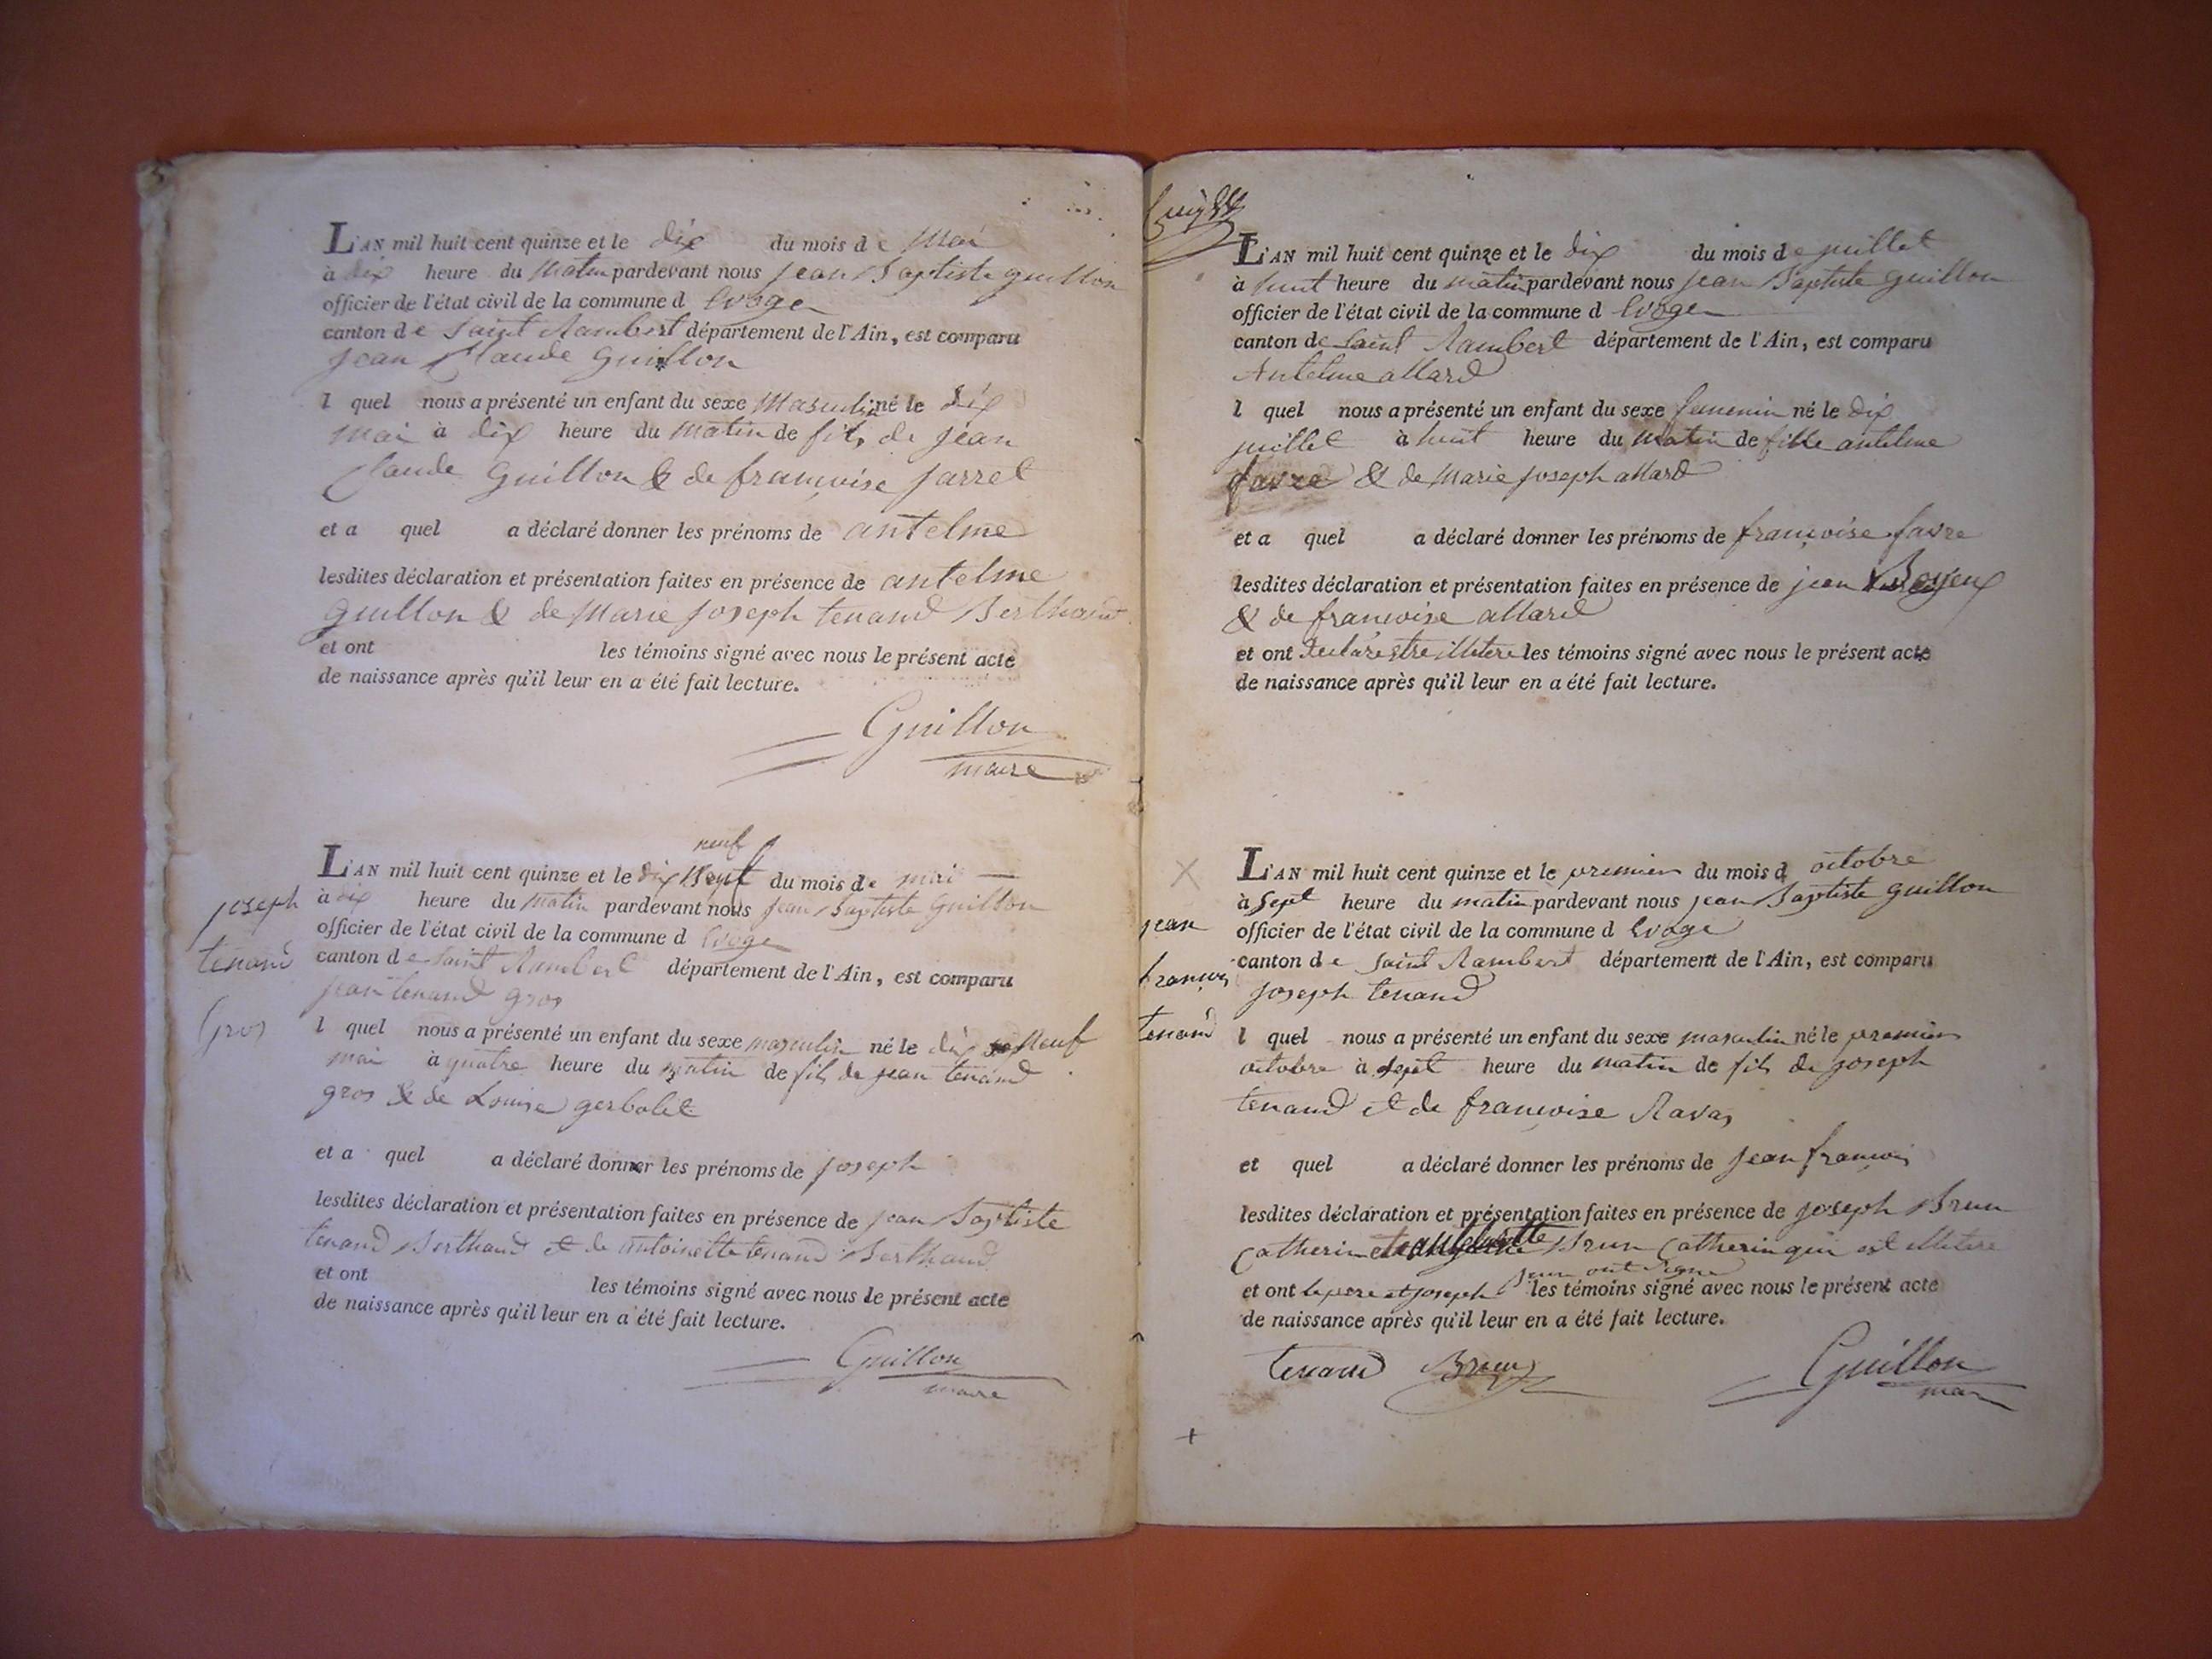 L'AN mil huit cent quinze et le dix du mois de mai
à dix heure du matin pardevant nous jean Baptiste guillon
officier de l'état civil de la commune d Evoge
canton de Saint Rambert département de l'Ain, est comparu
jean Claude Guillon
l quel nous a présenté un enfant du sexe masculin né le dix
mai à dix heure du matin de fils de jean
Claude Guillon & de françoise jarret
et a quel a déclaré donner les prénoms de antelme
lesdites déclaration et présentation faites en présence de antelme
guillon & de Marie joseph tenand Berthand
et ont les témoins signé avec nous le présent acte
de naissance après qu'il leur en a été fait lecture.
Guillon
maire
neuf
L'AN mil huit cent quinze et le dix Neuf du mois de mai
à dix heure du matin pardevant nous jean Baptiste Guillon
officier de l'état civil de la commune d Evoge
canton de Saint Rambert département de l'Ain, est comparu
jean tenand gros
joseph
tenand
Gros
l quel nous a présenté un enfant du sexe masculin né le dix Neuf
mai à quatre heure du matin de fils de jean tenand
gros & de Louise gerbolet
et a quel a déclaré donner les prénoms de joseph
lesdites déclaration et présentation faites en présence de jean Baptiste
tenand Berthand et de antoinette tenand Berthand
et ont les témoins signé avec nous le présent acte
de naissance après qu'il leur en a été fait lecture.
Guillon
maire
L'AN mil huit cent quinze et le dix du mois de juillet
à huit heure du matin pardevant nous jean Baptiste guillon
officier de l'état civil de la commune d Evoge
canton de Saint Rambert département de l'Ain, est comparu
Antelme allard
l quel nous a présenté un enfant du sexe femenin né le dix
juillet à huit heure du matin de fille antelme
favre & de Marie joseph allard
et a quel a déclaré donner les prénoms de françoise favre
lesdites déclaration et présentation faites en présence de jean
& de françoise allard
et ont declare stre illetere les témoins signé avec nous le présent acte
de naissance après qu'il leur en a été fait lecture.
L'AN mil huit cent quinze et le premier du mois d octobre
à sept heure du matin pardevant nous jean Baptiste guillon
officier de l'état civil de la commune d Evoge
canton de Saint Rambert département de l'Ain, est comparu
joseph tenand
jean
françois
tenand
l quel nous a présenté un enfant du sexe masculin né le premier
octobre à sept heure du matin de fils de joseph
tenand et de françoise Ravas
et quel a déclaré donner les prénoms de jean françois
lesdites déclaration et présentation faites en présence de joseph Brun
Catherin Brun Catherin qui est illetere
Brun ont signé
et ont le pere et joseph les témoins signé avec nous le présent acte
de naissance après qu'il leur en a été fait lecture.
tenand Brun Guillon
maire